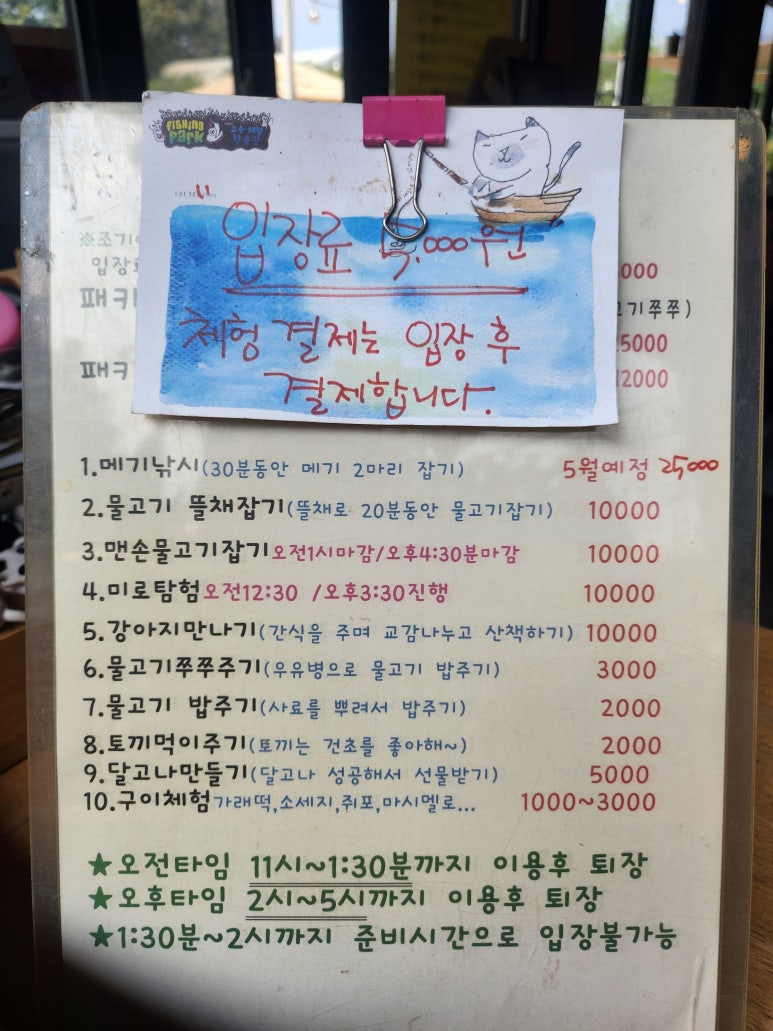 FISHING PARK
"입장료 5,000원"
체험 결제는 입장 후
결제합니다.
000
고기쭈쭈)
패키
5000
패키
12000
1.메기낚시(30분동안 메기 2마리 잡기) 5월예정 25000
2.물고기 뜰채잡기(뜰채로 20분동안 물고기잡기) 10000
3.맨손물고기잡기오전1시마감/오후4:30분마감 10000
4.미로탐험오전12:30 /오후3:30진행 10000
5.강아지만나기(간식을 주며 교감나누고 산책하기) 10000
6.물고기쭈쭈주기(우유병으로 물고기 밥주기) 3000
7.물고기 밥주기(사료를 뿌려서 밥주기) 2000
8.토끼먹이주기(토끼는 건초를 좋아해~) 2000
9.달고나만들기(달고나 성공해서 선물받기) 5000
10.구이체험가래떡,소세지,쥐포,마시멜로... 1000~3000
★오전타임 11시~1:30분까지 이용후 퇴장
★오후타임 2시~5시까지 이용후 퇴장
★1:30분~2시까지 준비시간으로 입장불가능